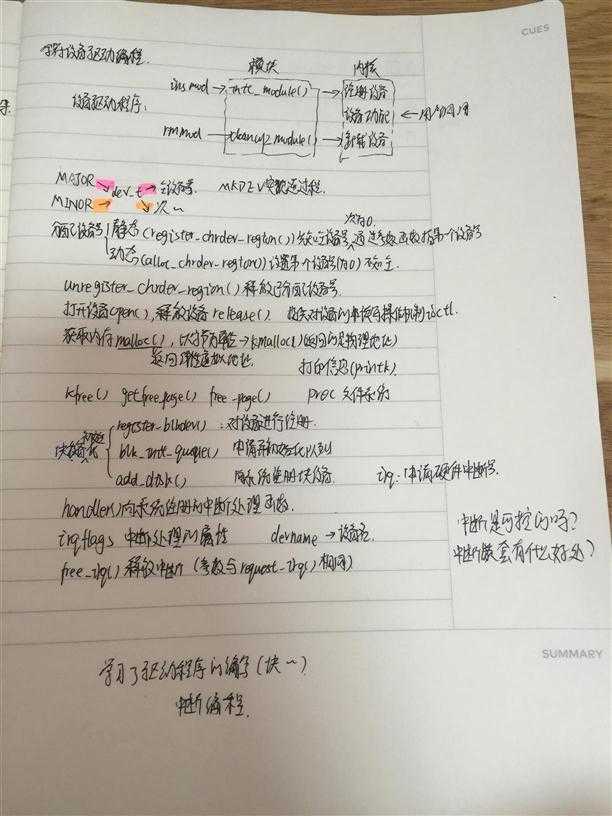 CUES
字符设备驱动编程.
模块 内核
设备驱动程序:
insmod → init_module() → 注册设备
设备功能 ← 用户调用
rmmod → cleanup_module() → 卸载设备
MAJOR dev_t → 主设备号. MKDEV实现逆过程.
MINOR 次~
次为0
分配设备号 静态(register_chrdev_region()) 设备号, 通过参数函数指第一个设备号
动态(alloc_chrdev_region()) 设置第一个设备号(为0)
unregister_chrdev_region() 释放已分配设备号.
打开设备open(), 释放设备release() 提供对设备的 控制ioctl.
获取内存malloc(), 以字节为单位 → kmalloc() (返回的是物理地址)
返回 虚拟地址. 打印信息(printk)
kfree() getfreepage() free-page() proc 文件系统
块设备 初始化
register-blkdev(): 对设备进行注册.
blk_init_queue() 申请并初始化队列
add_disk() 向系统注册块设备. irq: 申请硬件中断号.
handler() 向系统注册的中断处理函数
irqflags 中断处理的属性 devname → 设备名
free_irq() 释放中断 (参数与request_irq()相同)
中断是可控的吗?
中断 会有什么好处?
SUMMARY
学习了驱动程序的编写(块~)
中断编程.